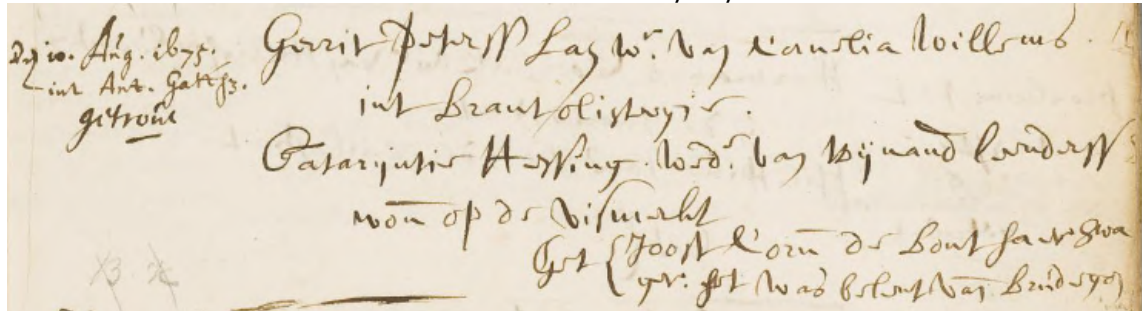 den 10. Aug. 1675.
int Ant. Gasth.
getrout
Gerrit Peterss Las Wr. van Cornelia Willems.
int Brantolistegie.
Catarijntie Hessing wedr. van Wijnand Leenderss
won op de Vismerkt
Get { Joost Corn de Bont haer swa
ger. het was bekent van Bruidegom